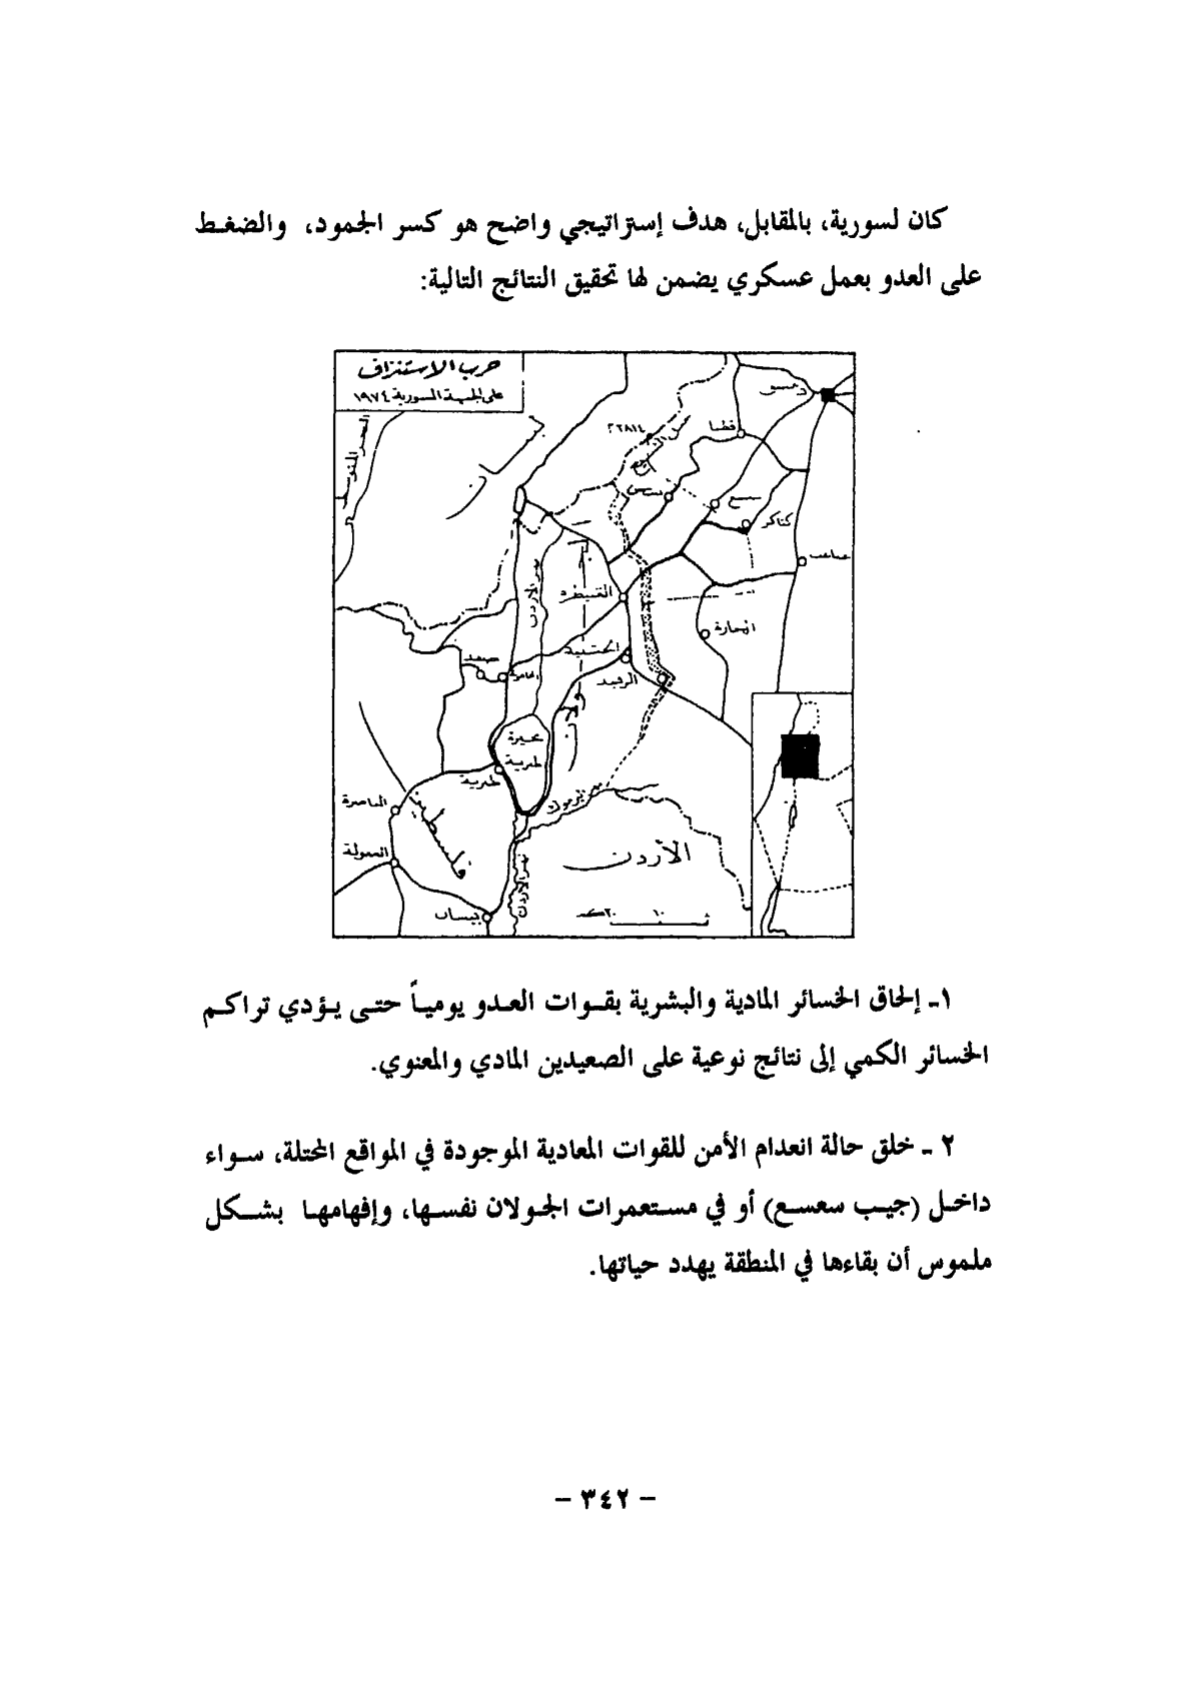 كان لسورية، بالمقابل، هدف إستراتيجي واضح هو كسر الجمود، والضغط
على العدو بعمل عسكري يضمن لها تحقيق النتائج التالية:
حرب الاستنزاف
على الجبهة السورية ١٩٧٤
دمشق
قطنا
٢٨١٤
سعسع
كناكر
القنيطرة
الحارة
نهر الأردن
صفد
الرفيد
بحيرة
طبرية
طبرية
الناصرة
العفولة
الأردن
نهر الأردن
بيسان
١٠ ٢٠كم
١ـ إلحاق الخسائر المادية والبشرية بقوات العدو يومياً حتى يؤدي تراكم
الخسائر الكمي إلى نتائج نوعية على الصعيدين المادي والمعنوي.
٢ ـ خلق حالة انعدام الأمن للقوات المعادية الموجودة في المواقع المحتلة، سواء
داخل (جيب سعسع) أو في مستعمرات الجولان نفسها، وإفهامها بشكل
ملموس أن بقاءها في المنطقة يهدد حياتها.
– ٣٤٢ –